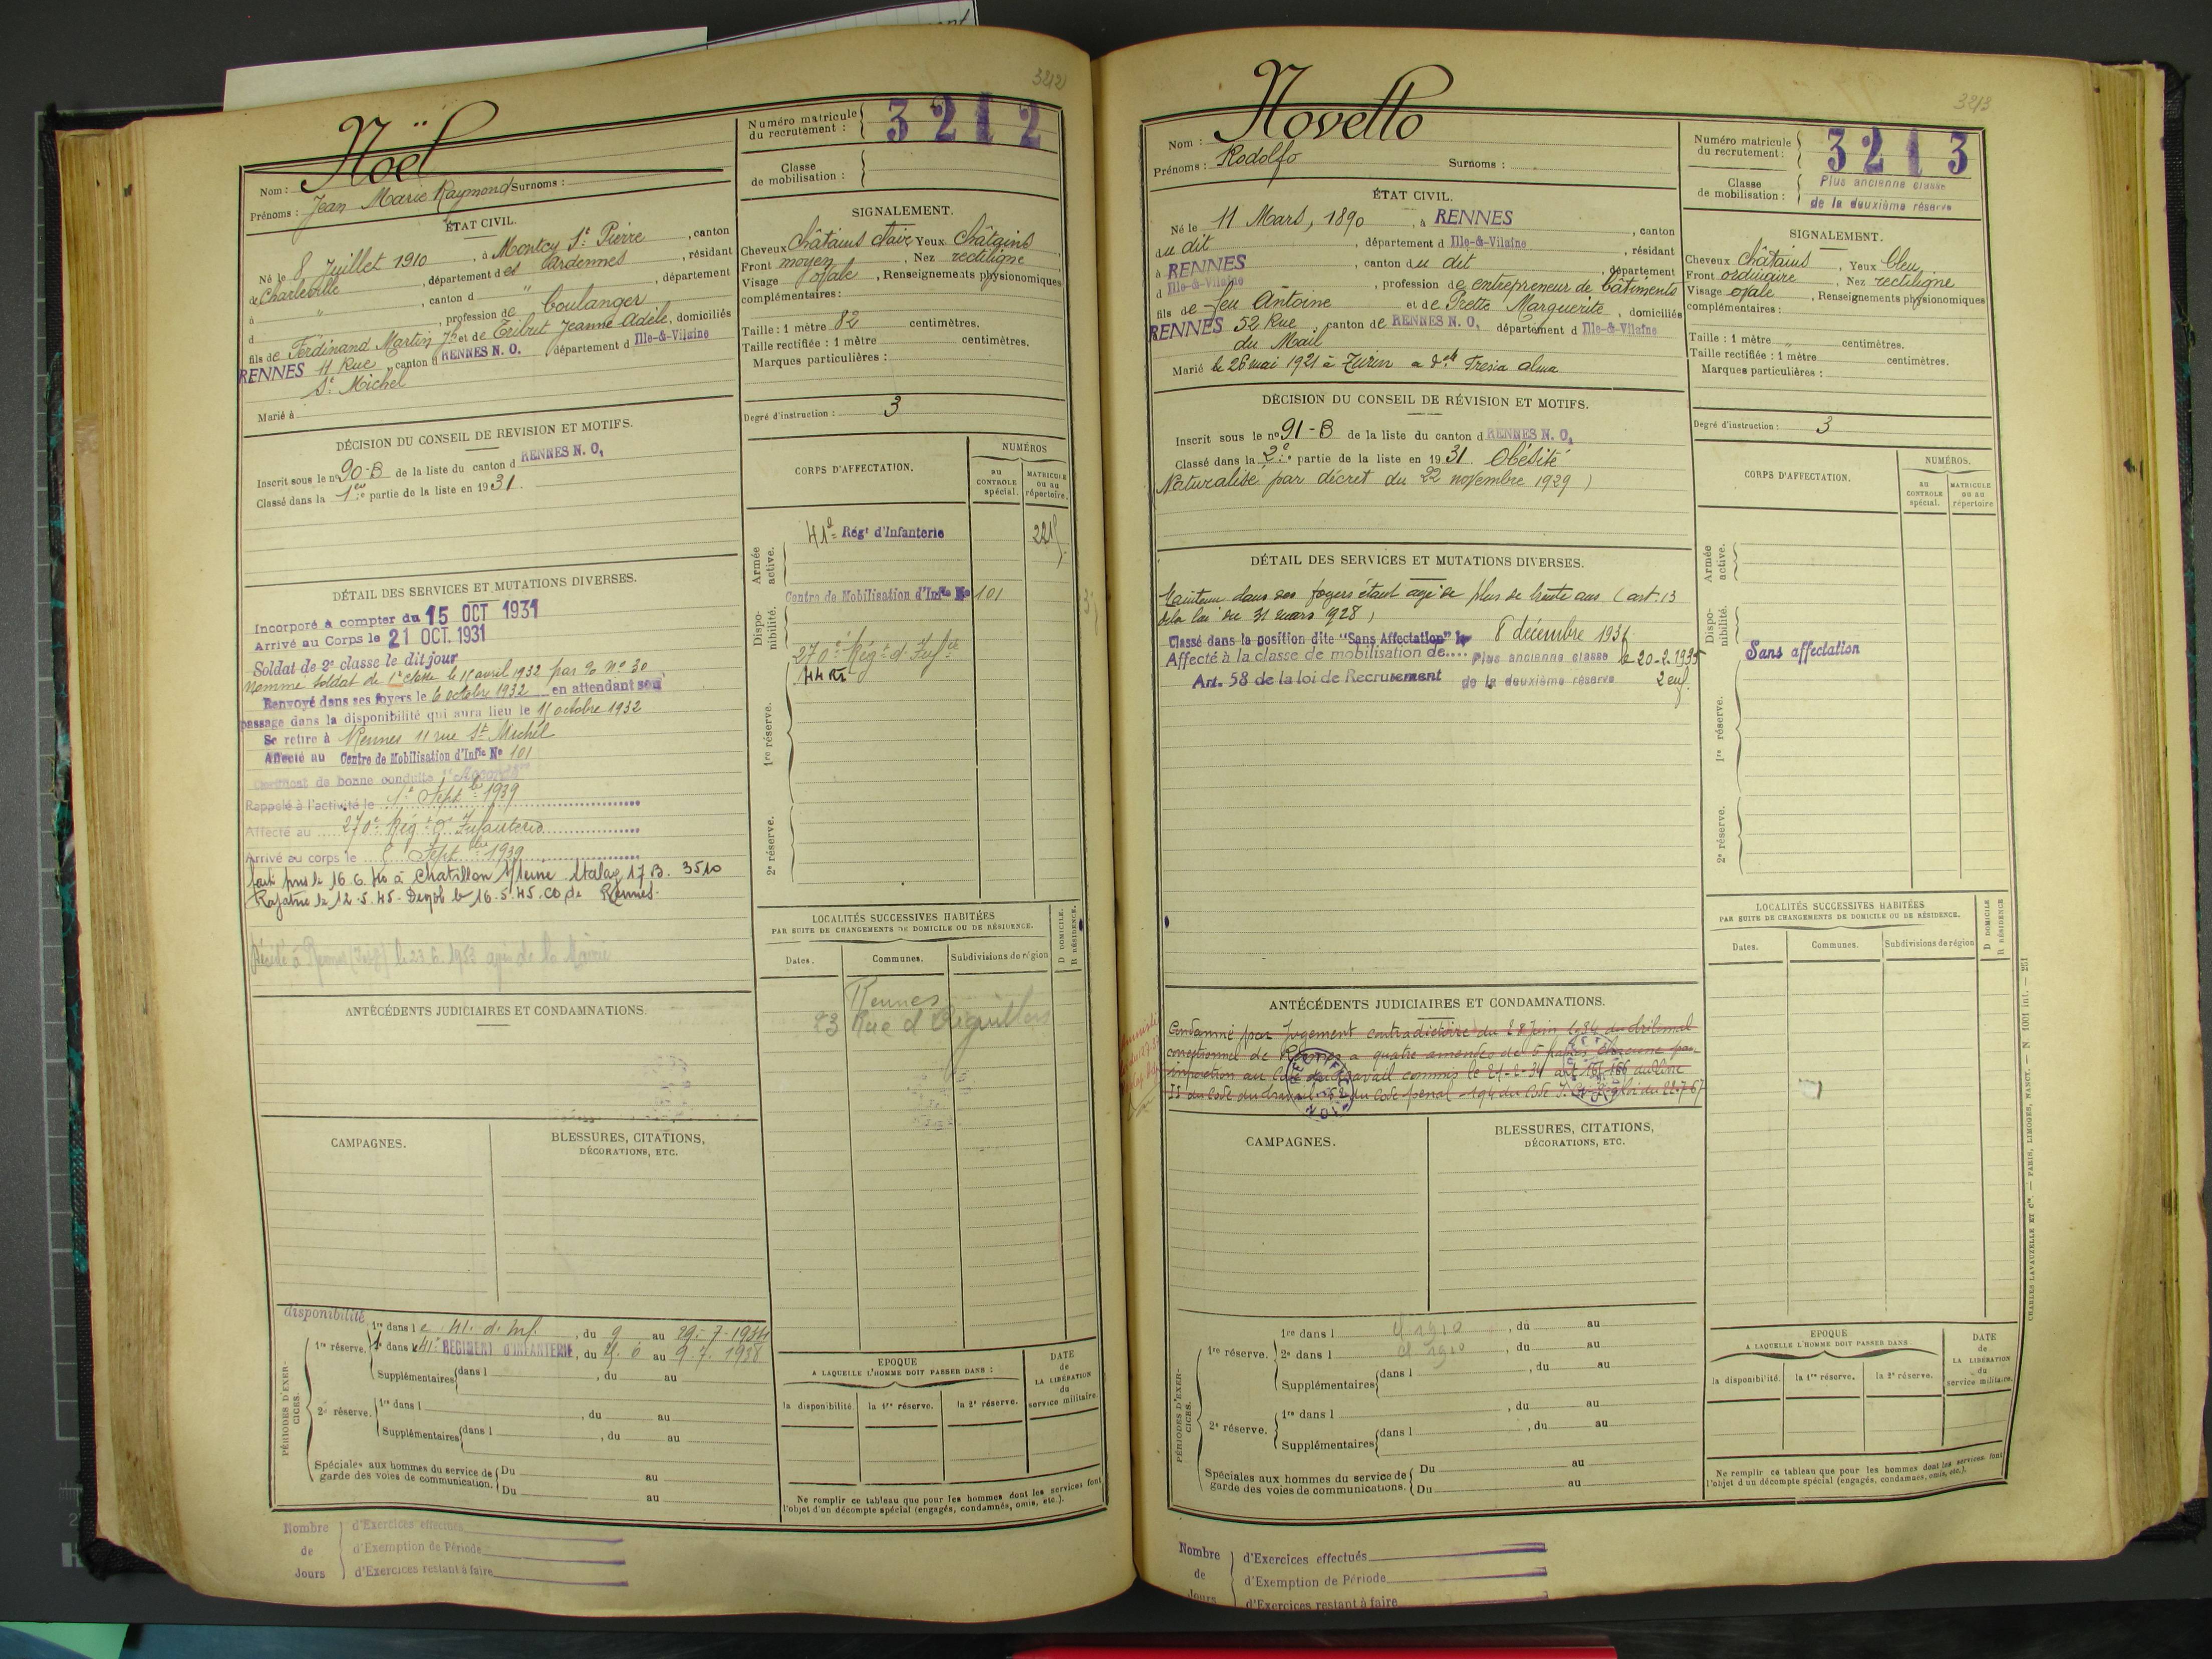 3212
Noël
Nom :
Prénoms : Jean Marie Raymond Surnoms :
ÉTAT CIVIL.
Né le 8 Juillet 1910, à Montcy St Pierre, canton
de Charleville, département des Ardennes, résidant
à " , canton d " , département
d " , profession de boulanger
fils de Ferdinand Martin Jh et de Tribut Jeanne Adèle, domiciliés
RENNES 11 Rue canton d RENNES N. O. département d Ille-&-Vilaine
St Michel
Marié à
DÉCISION DU CONSEIL DE REVISION ET MOTIFS.
Inscrit sous le n° 90-B de la liste du canton d RENNES N. O.
Classé dans la 1ère partie de la liste en 1931.
DÉTAIL DES SERVICES ET MUTATIONS DIVERSES.
Incorporé à compter du 15 OCT 1931
Arrivé au Corps le 21 OCT. 1931
Soldat de 2e classe le dit jour
Nommé soldat de 1e classe le 15 avril 1932 par % n° 30
Renvoyé dans ses foyers le 6 octobre 1932 en attendant son
passage dans la disponibilité qui aura lieu le 15 octobre 1932
Se retire à Rennes 11 rue St Michel
Affecté au Centre de Mobilisation d'Infie No 101
Certificat de bonne conduite "Accordé"
Rappelé à l'activité le 1er Septbre 1939
Affecté au 270e Régt d'Infanterie
Arrivé au corps le Septbre 1939
fait pris le 16.6.40 à Chatillon s/Seine Stalag 17 B. 3510
Rapatrié le 12.5.45. Démob le 16.5.45. CD de Rennes.
Décédé à Rennes le 23.6.1953 avis de la Mairie
ANTÉCÉDENTS JUDICIAIRES ET CONDAMNATIONS
CAMPAGNES.
BLESSURES, CITATIONS,
DÉCORATIONS, ETC.
PÉRIODES D'EXERCICES.
disponibilité
1re réserve. 1re dans le 41. d. Inf. , du 9 au 29-7-1934
2e dans le 41e REGIMENT D'INFANTERIE, du au 9.7.1938
Supplémentaires dans l , du au
2e réserve. 1re dans l , du au
Supplémentaires dans l , du au
Spéciales aux hommes du service de Du au
garde des voies de communication. Du au
Nombre de Jours
d'Exercices effectués
d'Exemption de Période
d'Exercices restant à faire
Numéro matricule
du recrutement : 3212
Classe
de mobilisation :
SIGNALEMENT.
Cheveux Châtains clair Yeux Châtains
Front moyen, Nez rectiligne
Visage ovale, Renseignements physionomiques
complémentaires :
Taille : 1 mètre 82 centimètres.
Taille rectifiée : 1 mètre centimètres.
Marques particulières :
Degré d'instruction : 3
CORPS D'AFFECTATION.
NUMÉROS
au CONTROLE spécial.
MATRICULE ou au répertoire.
Armée active.
41e Régt d'Infanterie
Disponibilité.
Centre de Mobilisation d'Infie No 101
270e Régt d'Infie
1re réserve.
2e réserve.
LOCALITÉS SUCCESSIVES HABITÉES
PAR SUITE DE CHANGEMENTS DE DOMICILE OU DE RÉSIDENCE.
D DOMICILE.
R RÉSIDENCE.
Dates. Communes. Subdivisions de région
Rennes
23 Rue d'Aiguillon
EPOQUE
A LAQUELLE L'HOMME DOIT PASSER DANS :
la disponibilité. la 1re réserve. la 2e réserve.
DATE
de
LA LIBÉRATION
du
service militaire.
Ne remplir ce tableau que pour les hommes dont les services font
l'objet d'un décompte spécial (engagés, condamnés, omis, etc.).
3213
Novello
Nom :
Prénoms : Rodolfo Surnoms :
ÉTAT CIVIL.
Né le 11 Mars, 1890, à RENNES, canton
du dit, département d Ille-&-Vilaine, résidant
à RENNES, canton du dit, département
d Ille-&-Vilaine, profession de entrepreneur de bâtiments
fils de feu Antoine et de Prette Marguerite, domiciliés
RENNES 52 Rue canton de RENNES N. O. département d Ille-&-Vilaine
du Mail
Marié le 26 mai 1921 à Turin a delle Fresia Alma
DÉCISION DU CONSEIL DE RÉVISION ET MOTIFS.
Inscrit sous le n° 91-B de la liste du canton d RENNES N. O.
Classé dans la 2e partie de la liste en 1931. Obésité
Naturalisé par décret du 22 novembre 1929)
DÉTAIL DES SERVICES ET MUTATIONS DIVERSES.
Maintenu dans ses foyers étant agé de plus de trente ans (art. 13
de la loi du 31 mars 1928)
Classé dans la position dite "Sans Affectation" le 8 décembre 1931
Affecté à la classe de mobilisation de.... Plus ancienne classe le 20-2-1935
Art. 58 de la loi de Recrutement de la deuxième réserve 2 enf.
ANTÉCÉDENTS JUDICIAIRES ET CONDAMNATIONS.
Condamné par jugement contradictoire du 28 juin 1934 du tribunal
correctionnel de Rennes a quatre amendes de 5 francs chacune par
infraction au Code du travail commis le art. du livre
II du Code du travail du Code pénal 194 du Code I. loi du 22-7-67
CAMPAGNES.
BLESSURES, CITATIONS,
DÉCORATIONS, ETC.
PÉRIODES D'EXERCICES.
1re réserve. 1re dans l cl 1910, du au
2e dans l cl 1910, du au
Supplémentaires dans l , du au
2e réserve. 1re dans l , du au
Supplémentaires dans l , du au
Spéciales aux hommes du service de Du au
garde des voies de communications. Du au
Nombre de Jours
d'Exercices effectués
d'Exemption de Période
d'Exercices restant à faire
Numéro matricule
du recrutement : 3213
Classe
de mobilisation : Plus ancienne classe
de la deuxième réserve
SIGNALEMENT.
Cheveux Châtains, Yeux bleu
Front ordinaire, Nez rectiligne
Visage ovale, Renseignements physionomiques
complémentaires :
Taille : 1 mètre " centimètres.
Taille rectifiée : 1 mètre centimètres.
Marques particulières :
Degré d'instruction : 3
CORPS D'AFFECTATION.
NUMÉROS.
au CONTROLE spécial.
MATRICULE ou au répertoire
Armée active.
Disponibilité.
Sans affectation
1re réserve.
2e réserve.
LOCALITÉS SUCCESSIVES HABITÉES
PAR SUITE DE CHANGEMENTS DE DOMICILE OU DE RÉSIDENCE.
D DOMICILE
R RÉSIDENCE
Dates. Communes. Subdivisions de région
EPOQUE
A LAQUELLE L'HOMME DOIT PASSER DANS
la disponibilité. la 1re réserve. la 2e réserve.
DATE
de
LA LIBÉRATION
du
service militaire.
Ne remplir ce tableau que pour les hommes dont les services font
l'objet d'un décompte spécial (engagés, condamnés, omis, etc.).
CHARLES LAVAUZELLE ET Cie. — PARIS, LIMOGES, NANCY. — N. 1001 int. — 251